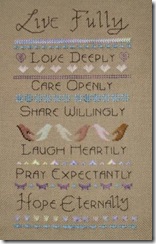 Live Fully
Love Deeply
Care Openly
Share Willingly
Laugh Heartily
Pray Expectantly
Hope Eternally